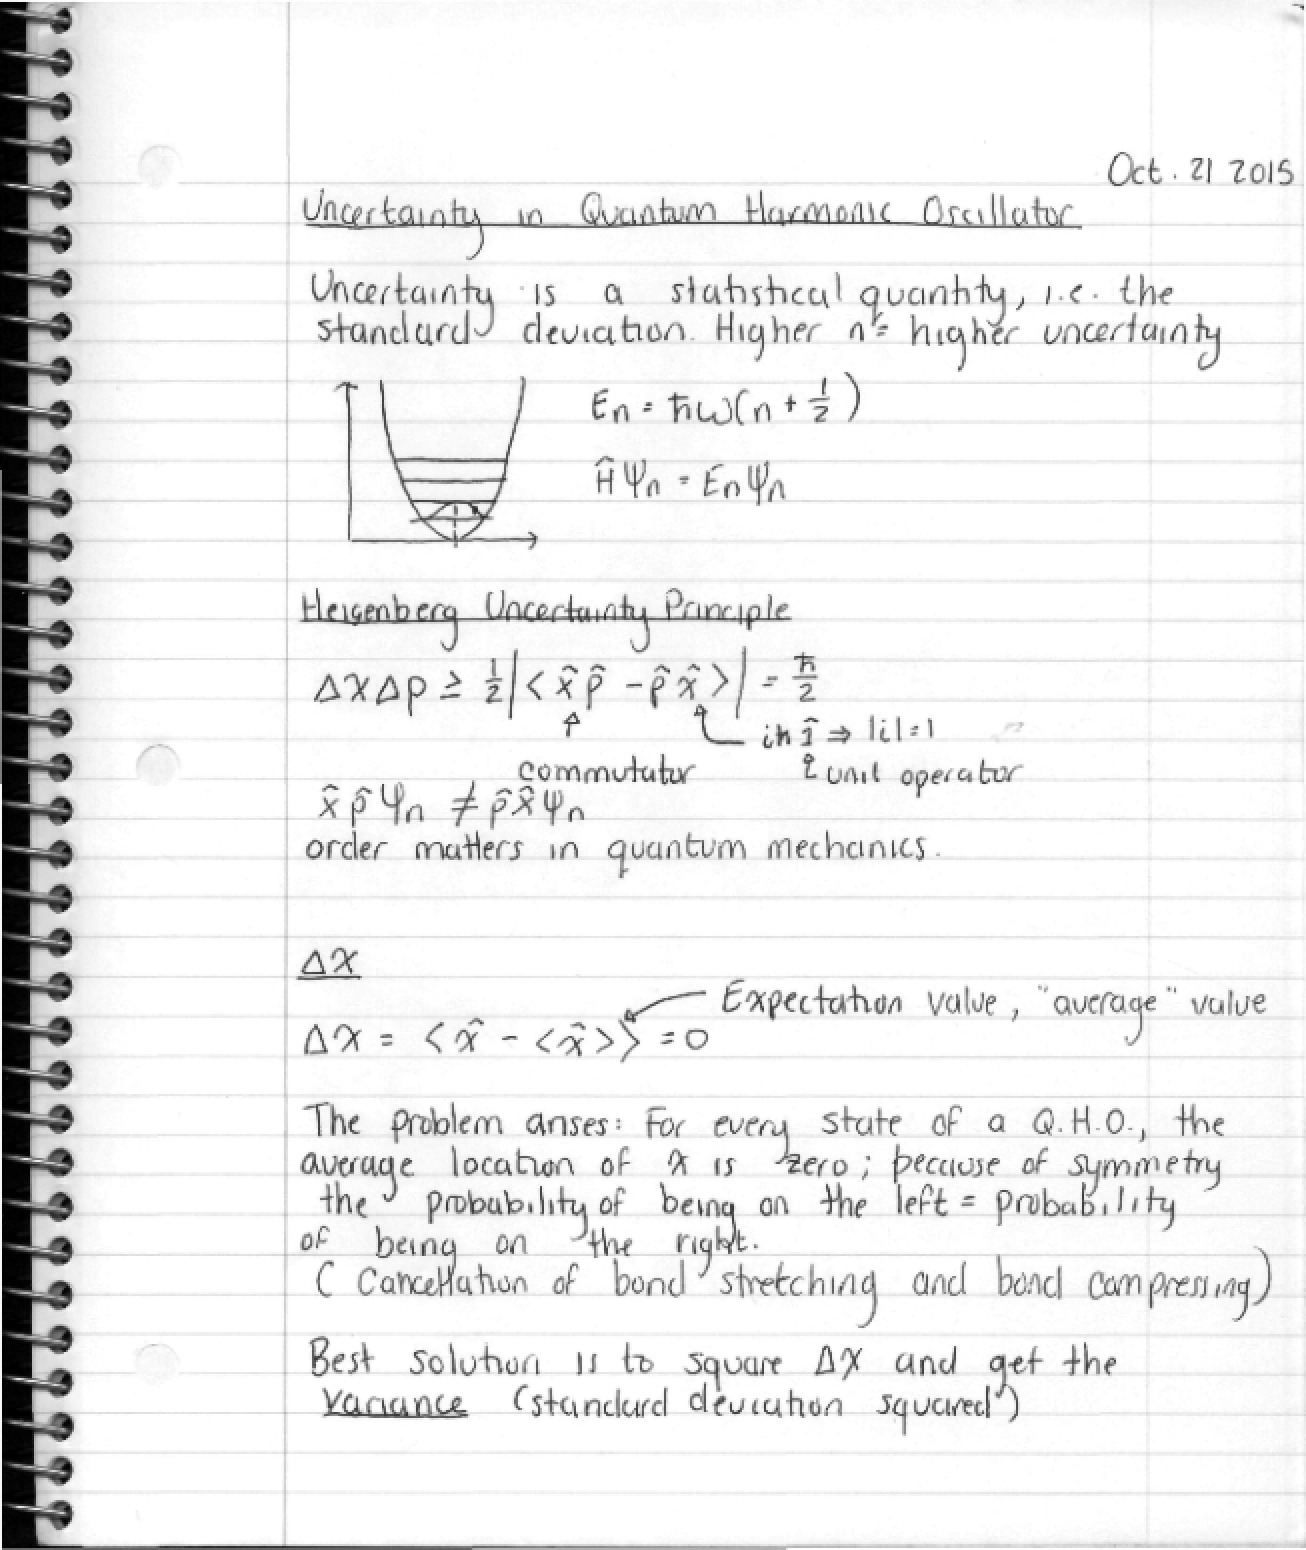 Oct. 21 2015
Uncertainty in Quantum Harmonic Oscillator
Uncertainty is a statistical quantity, i.e. the
standard deviation. Higher n = higher uncertainty
Eₙ = ħω(n + 1/2)
ĤΨₙ = EₙΨₙ
Heisenberg Uncertainty Principle
ΔxΔp ≥ 1/2 |<x̂p̂ - p̂x̂>| = ħ/2
iħ1̂ ⇒ |i|=1
commutator
unit operator
x̂p̂Ψₙ ≠ p̂x̂Ψₙ
order matters in quantum mechanics.
Δx
Expectation value, "average" value
Δx = <x̂ - <x̂>> = 0
The problem arises: For every state of a Q.H.O., the
average location of x is zero; because of symmetry
the probability of being on the left = probability
of being on the right.
(Cancellation of bond stretching and bond compressing)
Best solution is to square Δx and get the
variance (standard deviation squared)